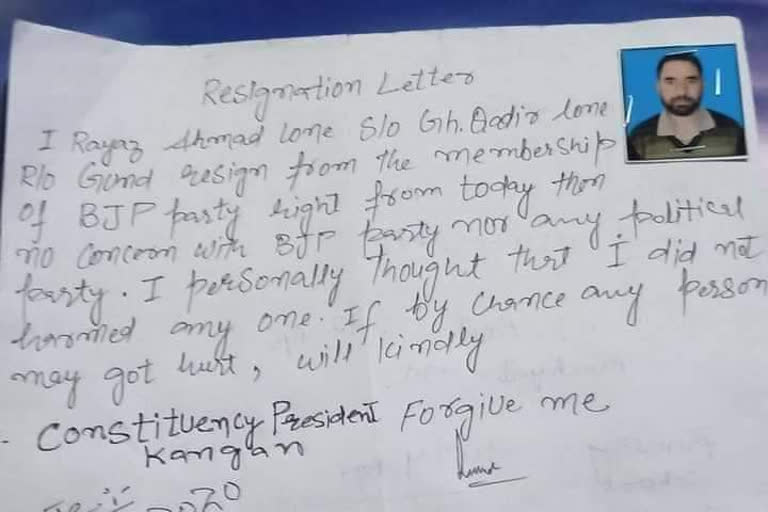 Resignation Letter
I Rayaz Ahmad lone S/o Gh. Qadir lone
R/o Gund resign from the membership
of BJP party right from today then
no concern with BJP party nor any political
party. I personally thought that I did not
harmed any one. If by chance any person
may got hurt, will kindly
Constituency President Forgive me
Kangan